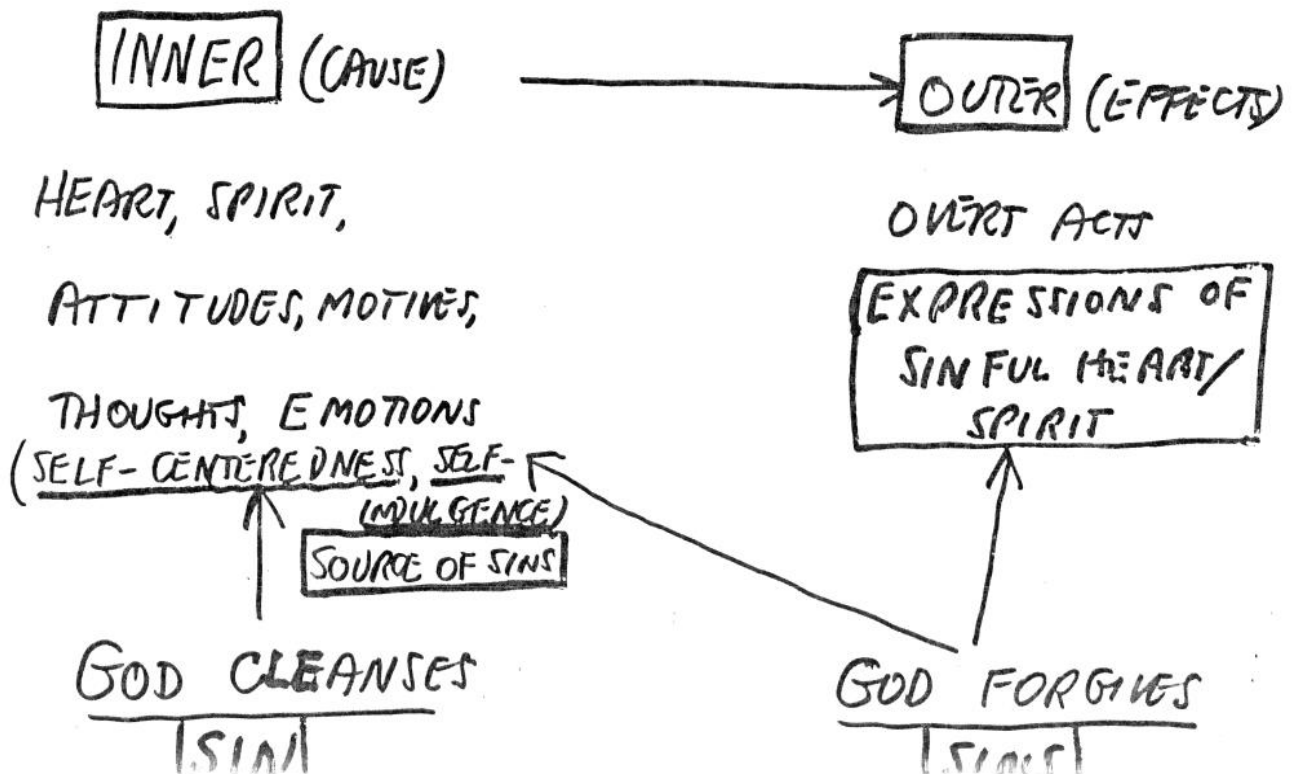 INNER (CAUSE)
OUTER (EFFECTS)
HEART, SPIRIT,
ATTITUDES, MOTIVES,
THOUGHTS, EMOTIONS
(SELF-CENTEREDNESS, SELF-
INDULGENCE)
SOURCE OF SINS
GOD CLEANSES
SIN
OVERT ACTS
EXPRESSIONS OF
SINFUL HEART/
SPIRIT
GOD FORGIVES
SINS